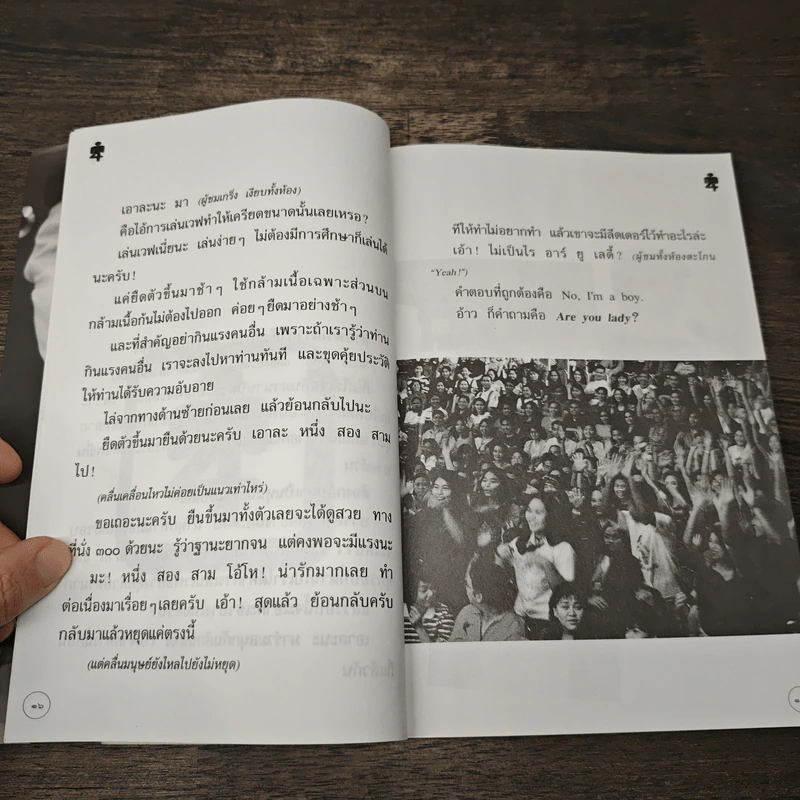 เอาละนะ มา (ผู้ชมเกร็ง เงียบทั้งห้อง)
คือไอ้การเล่นเวฟทำให้เครียดขนาดนั้นเลยเหรอ?
เล่นเวฟเนี่ยนะ เล่นง่ายๆ ไม่ต้องมีการศึกษาก็เล่นได้
นะครับ!
แค่ยืดตัวขึ้นมาช้าๆ ใช้กล้ามเนื้อเฉพาะส่วนบน
กล้ามเนื้อก้นไม่ต้องไปออก ค่อยๆยืดมาอย่างช้าๆ
และที่สำคัญอย่ากินแรงคนอื่น เพราะถ้าเรารู้ว่าท่าน
กินแรงคนอื่น เราจะลงไปหาท่านทันที และขุดคุ้ยประวัติ
ให้ท่านได้รับความอับอาย
ไล่จากทางด้านซ้ายก่อนเลย แล้วย้อนกลับไปนะ
ยืดตัวขึ้นมายืนด้วยนะครับ เอาละ หนึ่ง สอง สาม
ไป!
(คลื่นเคลื่อนไหวไม่ค่อยเป็นแนวเท่าไหร่)
ขอเถอะนะครับ ยืนขึ้นมาทั้งตัวเลยจะได้ดูสวย ทาง
ที่นั่ง ๓๐๐ ด้วยนะ รู้ว่าฐานะยากจน แต่คงพอจะมีแรงนะ
มะ! หนึ่ง สอง สาม โอ้โห! น่ารักมากเลย ทำ
ต่อเนื่องมาเรื่อยๆเลยครับ เอ้า! สุดแล้ว ย้อนกลับครับ
กลับมาแล้วหยุดแค่ตรงนี้
(แต่คลื่นมนุษย์ยังไหลไปยังไม่หยุด)
๑๖
ทีให้ทำไม่อยากทำ แล้วเขาจะมีลีดเดอร์ไว้ทำอะไรล่ะ
เอ้า! ไม่เป็นไร อาร์ ยู เลดี้? (ผู้ชมทั้งห้องตะโกน
"Yeah!")
คำตอบที่ถูกต้องคือ No, I'm a boy.
อ้าว ก็คำถามคือ Are you lady?